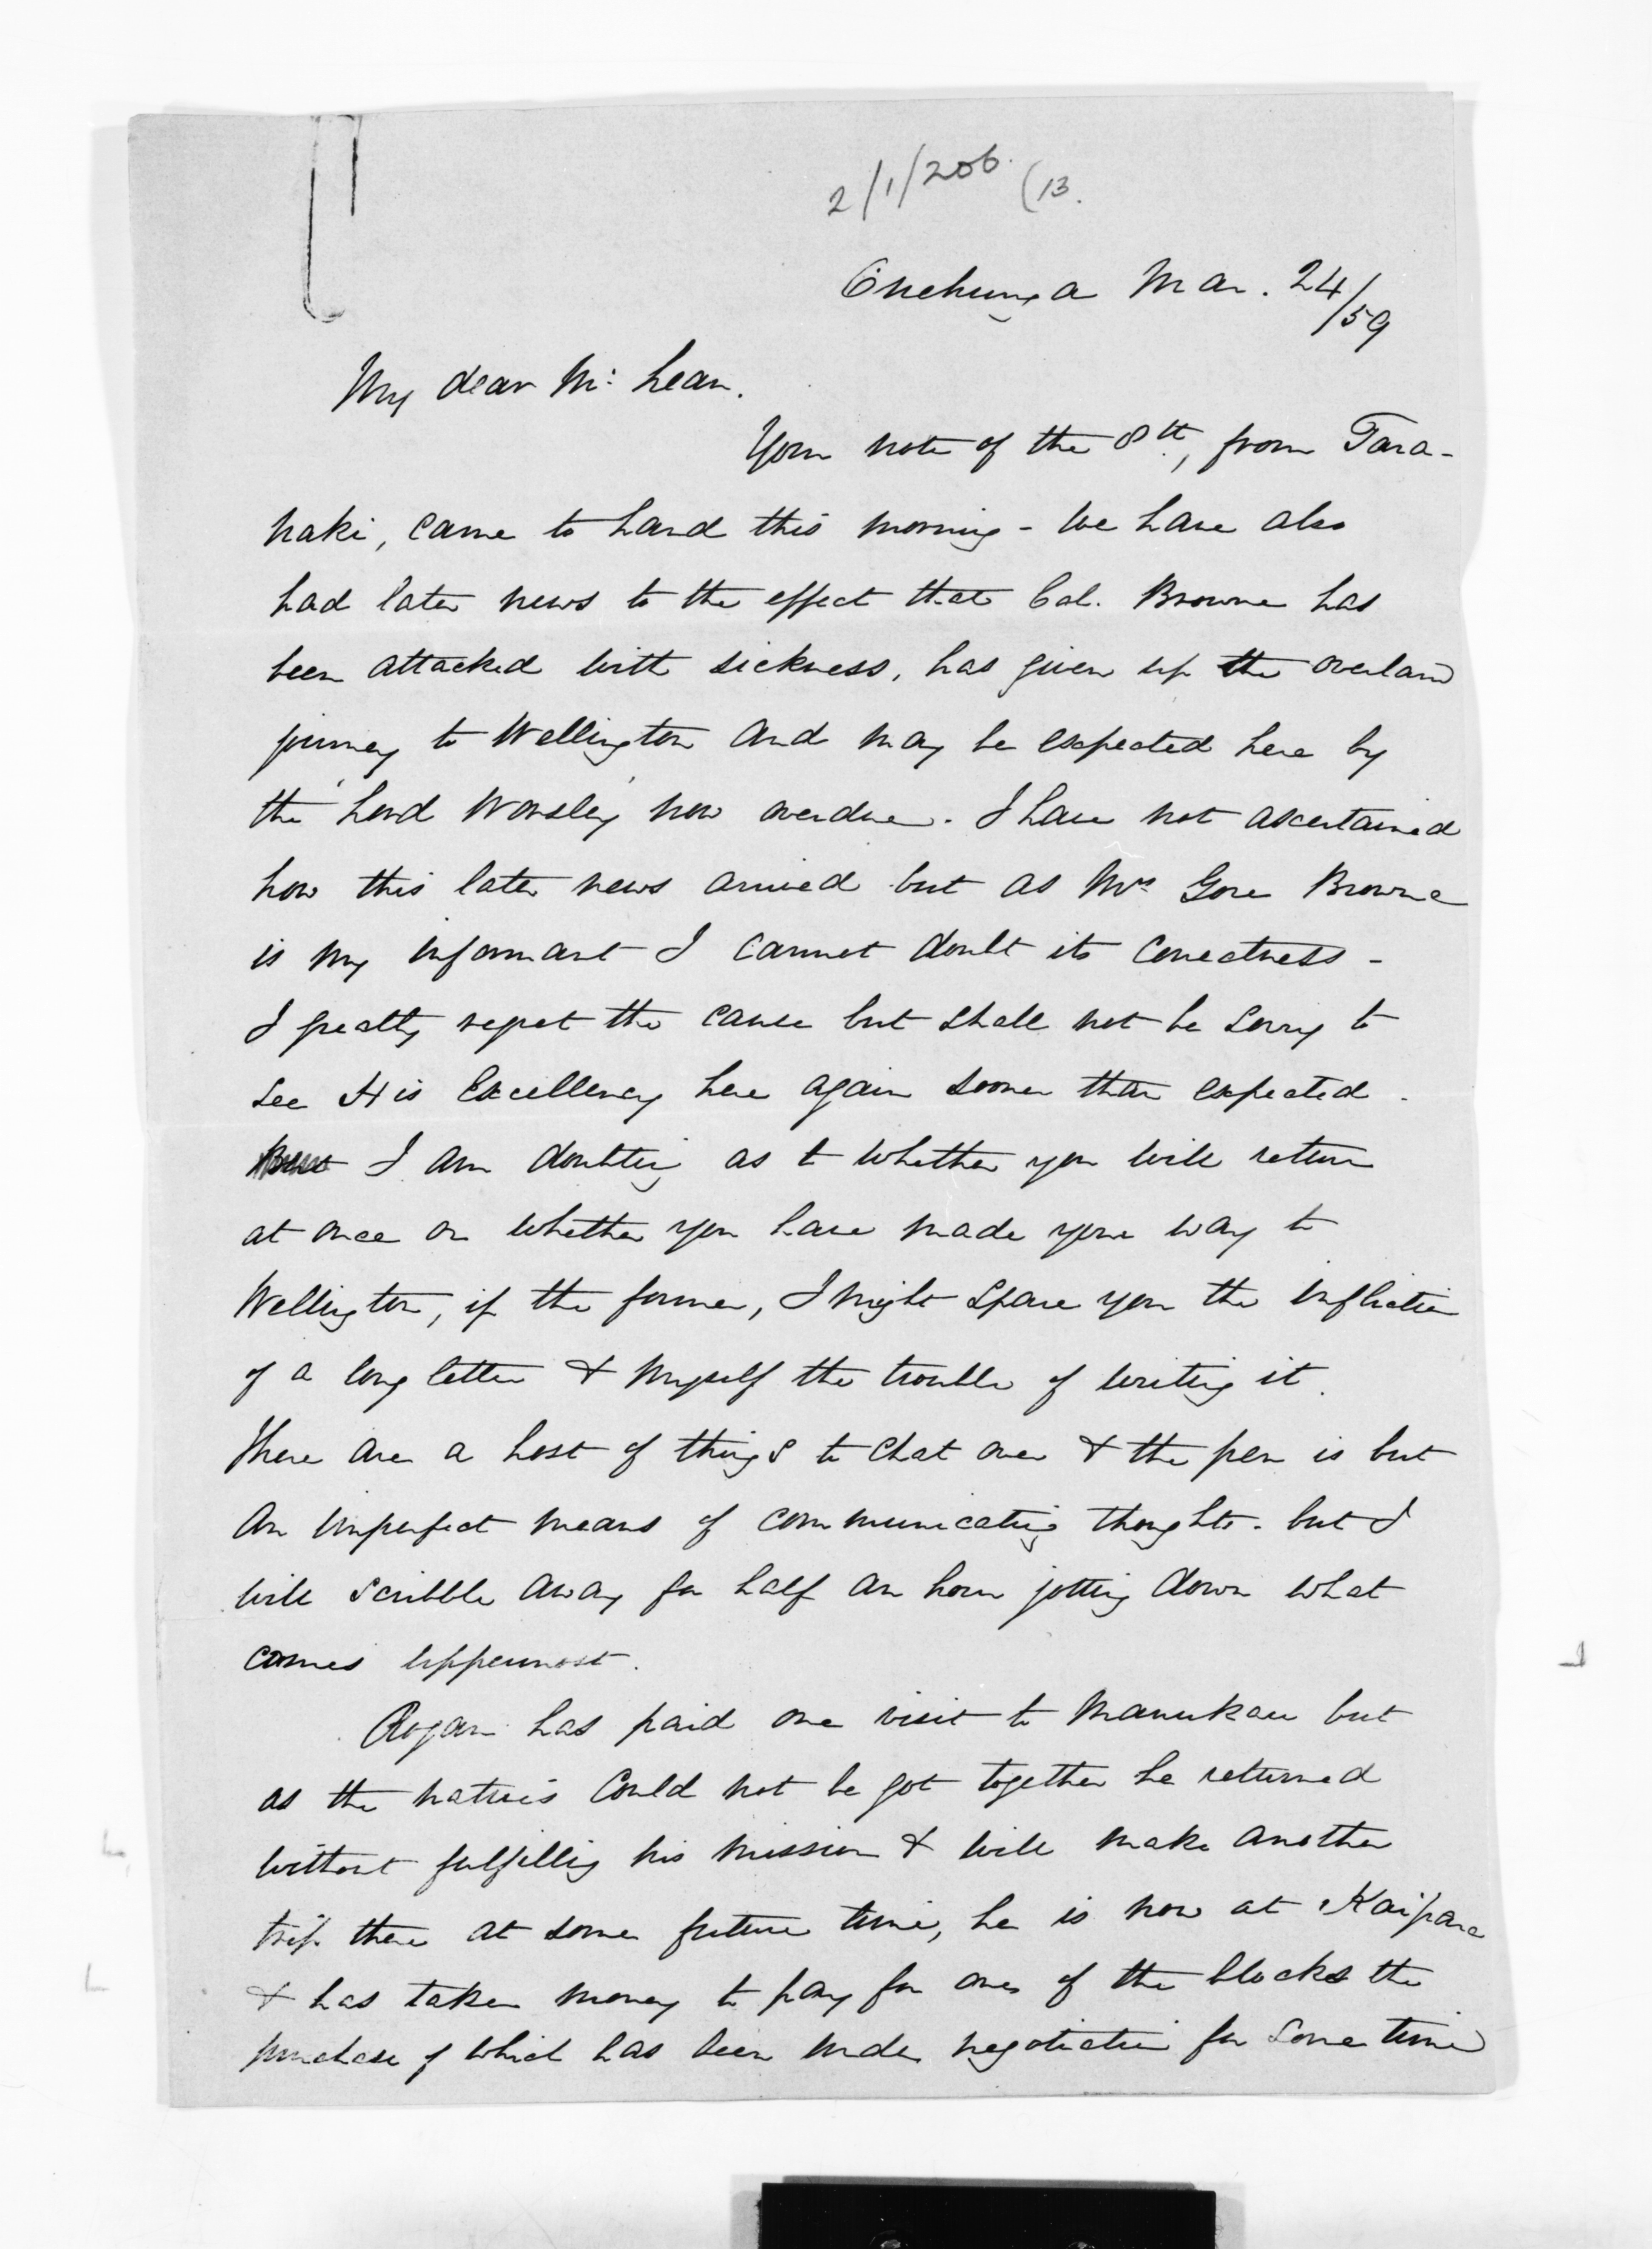 2/1/206. (13.
Onehunga Mar. 24/59
My dear Mc Lean.
Your note of the 8th, from Tara-
naki, came to hand this morning - We have also
had later news to the effect that Col. Browne has
been attacked with sickness, has given up the overland
journey to Wellington and may be expected here by
the 'Lord Worsley' now overdue. I have not ascertained
how this later news arrived but as Mrs Gore Browne
is my informant I cannot doubt its correctness -
I greatly regret the cause but shall not be sorry to
see His Excellency here again sooner than expected.
I am doubting as to whether you will return
at once or whether you have made your way to
Wellington, if the former, I might spare you the infliction
of a long letter & myself the trouble of writing it.
There are a host of things to chat over & the pen is but
an imperfect means of communicating thoughts. but I
will scribble away for half an hour jotting down what
comes uppermost.
Rogan has paid one visit to Manukau but
as the natives could not be got together he returned
without fulfilling his mission & will make another
trip there at some future time, he is now at Kaipara
& has taken money to pay for one of the blocks the
purchase of which has been under negotiation for some time